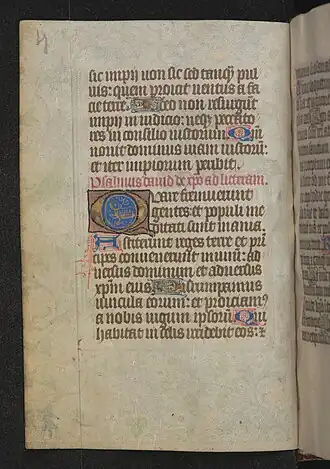 sic impii non sic sed tamq̄ pul
uis: quem proicit uentus a fa
cie terre. Ideo non resurgūt
impii in iudicio: neq; peccato
res in consilio iustorum. Qm̄
nouit dominus uiam iustorū:
et iter impiorum peribit.
Psalmus dauid de xp̄o ad litteram.
Quare fremuerunt
gentes: et populi me
ditati sunt inania.
Astiterunt reges terre et pri
cipes conuenerunt in unū: ad
uersus dominum et aduersus
xpm̄ eius. Disrumpamus
uincula eorum: et proiciam9
a nobis iugum ipsorū. Qui
habitat in celis irridebit eos: &